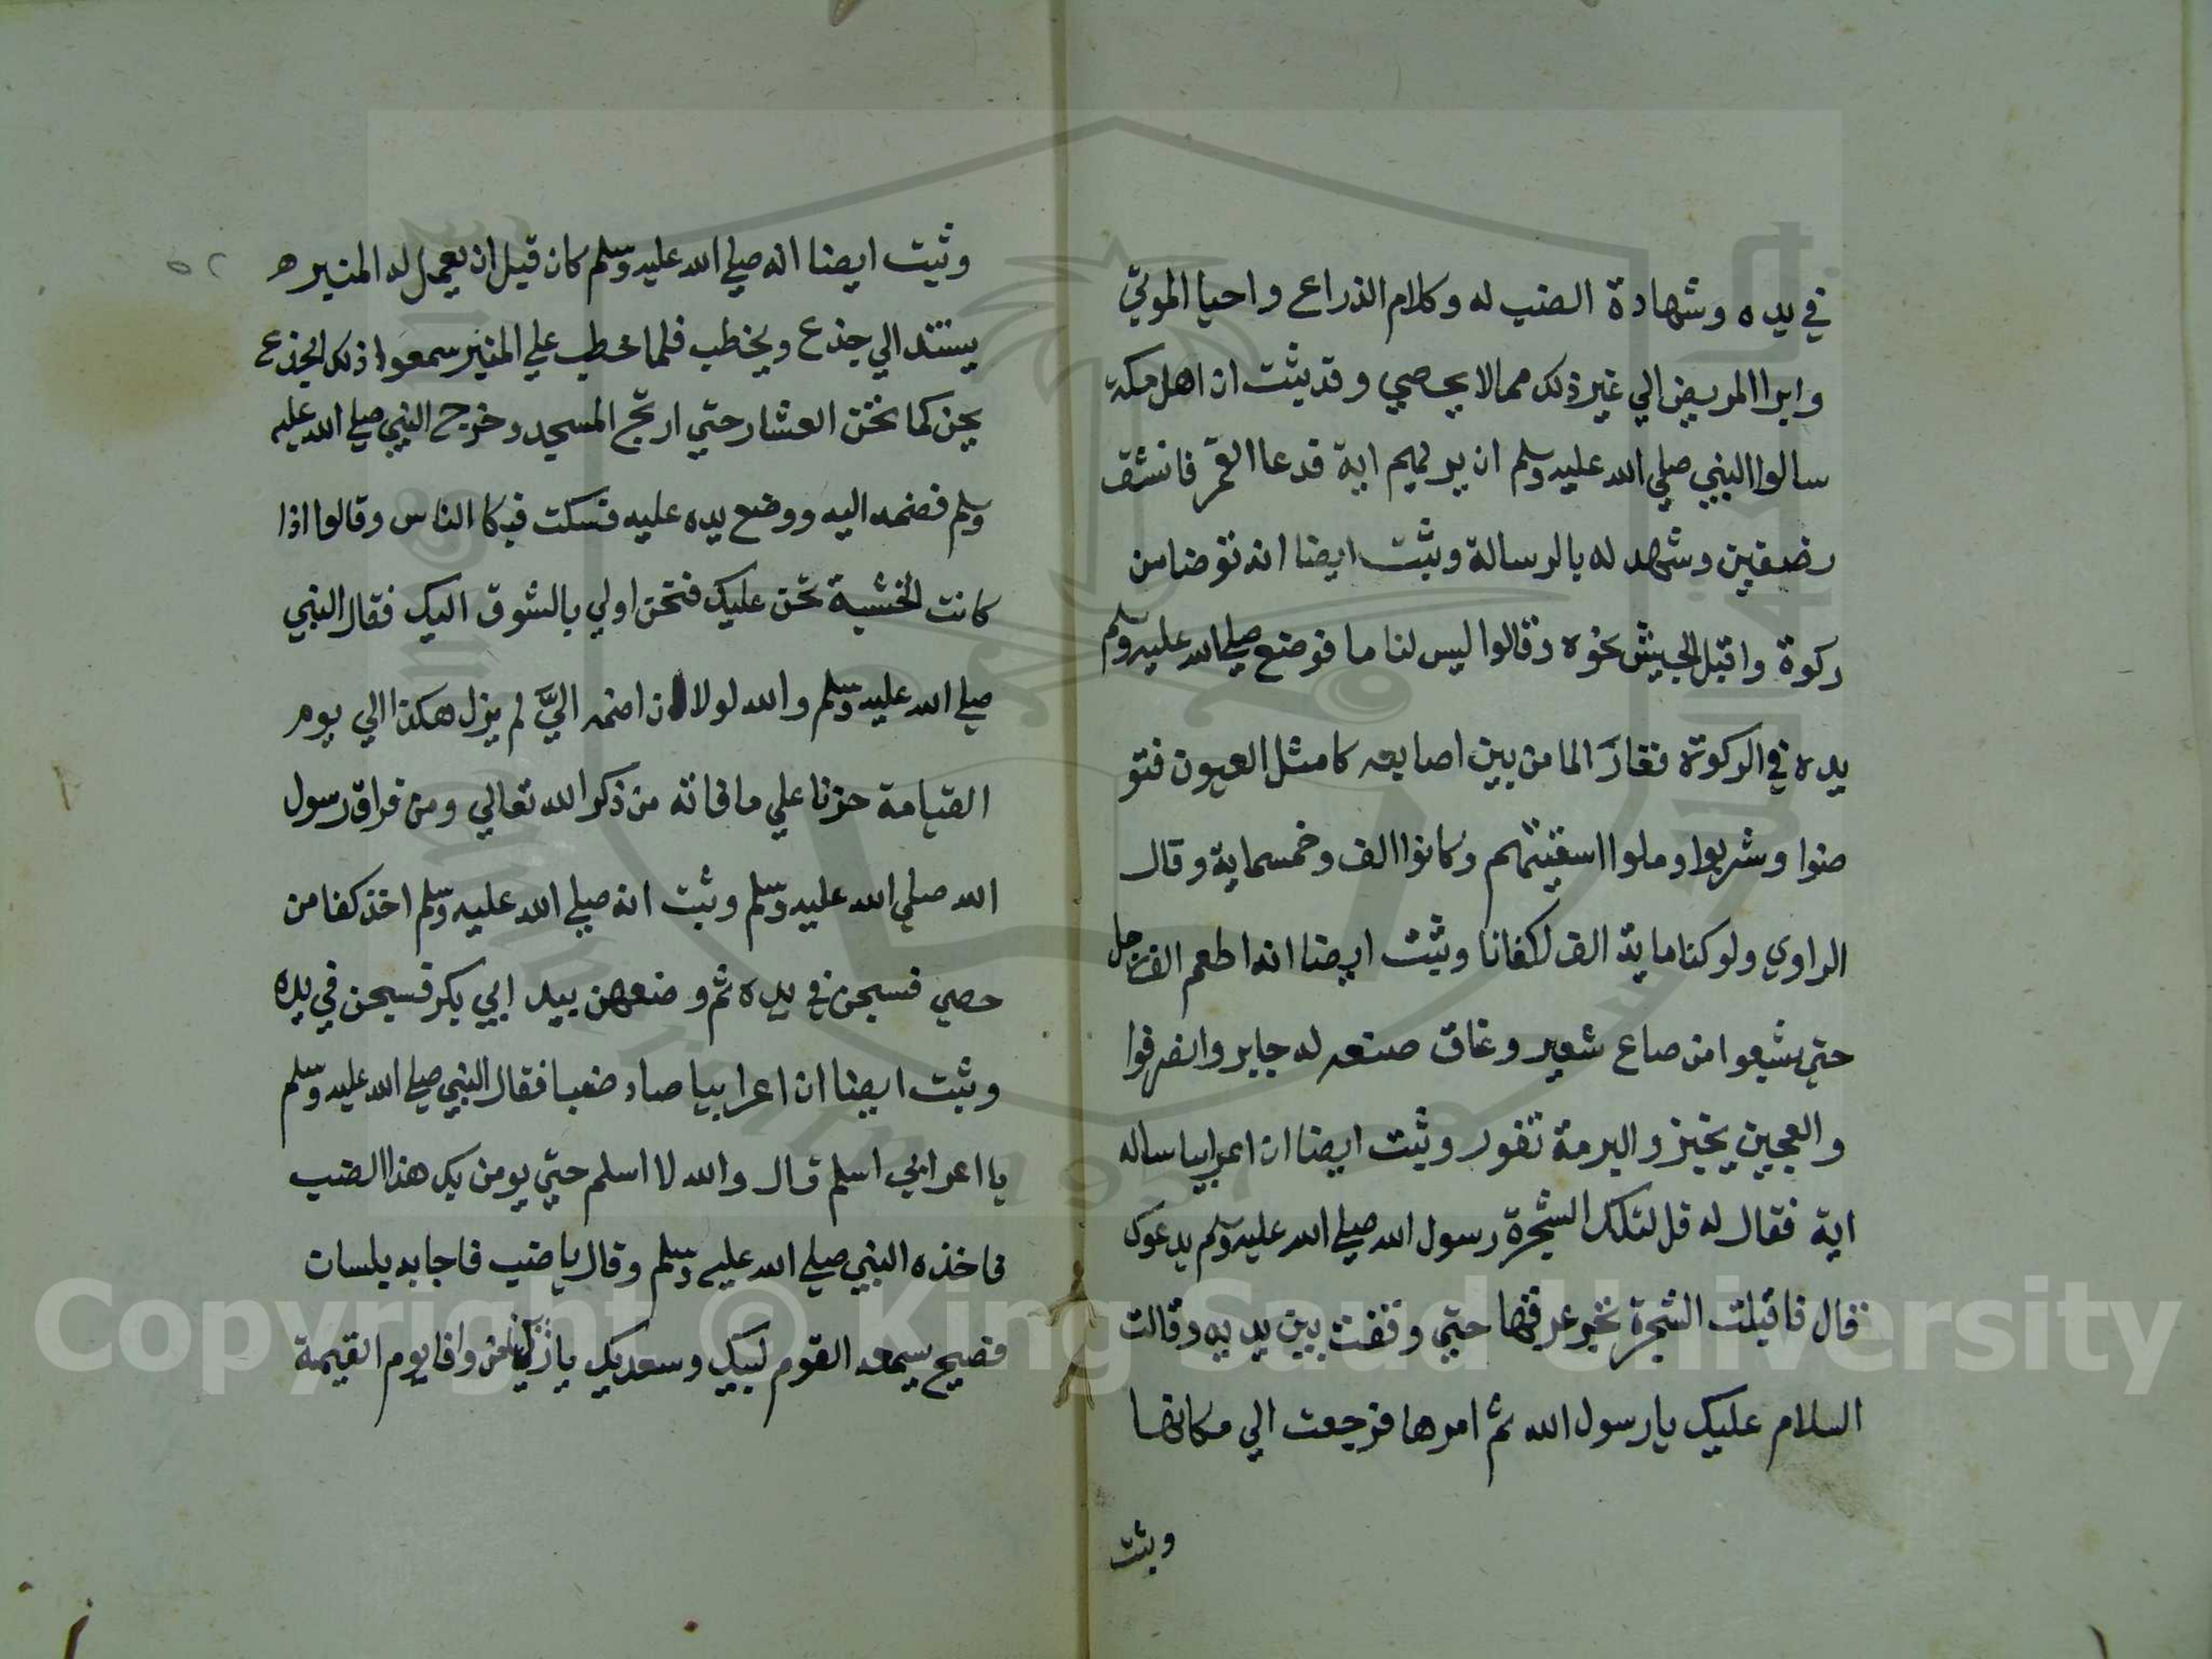 في يده وشهادة الضب له وكلام الذراع واحيا الموتي
وابرا المريض الي غير ذلك مما لا يحصي وقد ثبت ان اهل مكة
سالوا النبي صلي الله عليه وسلم ان يريهم اية فدعا القمر فانشق
رضفين وشهد له بالرسالة وثبت ايضا انه توضا من
ركوة واقبل الجيش نحوه وقالوا ليس لنا ما فوضع صلي الله عليه وسلم
يده في الركوة ففار الما من بين اصابعه كامثل العيون فتو
ضوا وشربوا وملوا اسقيتهم وكانوا الف وخمسماية وقال
الراوي ولو كنا ماية الف لكفانا وثبت ايضا انه اطعم الف رجل
حتي شبعوا من صاع شعير وعناق صنعه له جابر وانصرفوا
والعجين يخبز والبرمة تفور وثبت ايضا ان اعرابيا ساله
اية فقال له قل لتلك الشجرة رسول الله صلي الله عليه وسلم يدعوك
فقال فاقبلت الشجرة تجر عروقها حتي وقفت بين يديه وقالت
السلام عليك يا رسول الله ثم امرها فرجعت الي مكانها
وثبت
٥٢
وثبت ايضا انه صلي الله عليه وسلم كان قبل ان يعمل له المنبر ه
يستند الي جذع ويخطب فلما خطب علي المنبر سمعوا ذلك الجذع
يحن كما تحن العشار حتي ارتج المسجد وخرج النبي صلي الله عليه
وسلم فضمه اليه ووضع يده عليه فسكت فبكا الناس وقالوا اذا
كانت الخشبة تحن عليك فنحن اولي بالشوق اليك فقال النبي
صلي الله عليه وسلم والله لولا ان اضمه اليَّ لم يزل هكذا الي يوم
القيامة حزنا علي ما فاته من ذكر الله تعالي ومن فراق رسول
الله صلي الله عليه وسلم وثبت انه صلي الله عليه وسلم اخذ كفا من
حصي فسبحن في يده ثم وضعهن بيد ابي بكر فسبحن في يده
وثبت ايضا ان اعرابيا صاد ضبا فقال النبي صلي الله عليه وسلم
يا اعرابي اسلم قال والله لا اسلم حتي يومن بك هذا الضب
فاخذه النبي صلي الله عليه وسلم وقال يا ضب فاجابه بلسان
فصيح يسمعه القوم لبيك وسعديك يا وافا يوم القيمة
Copyright © King Saud University